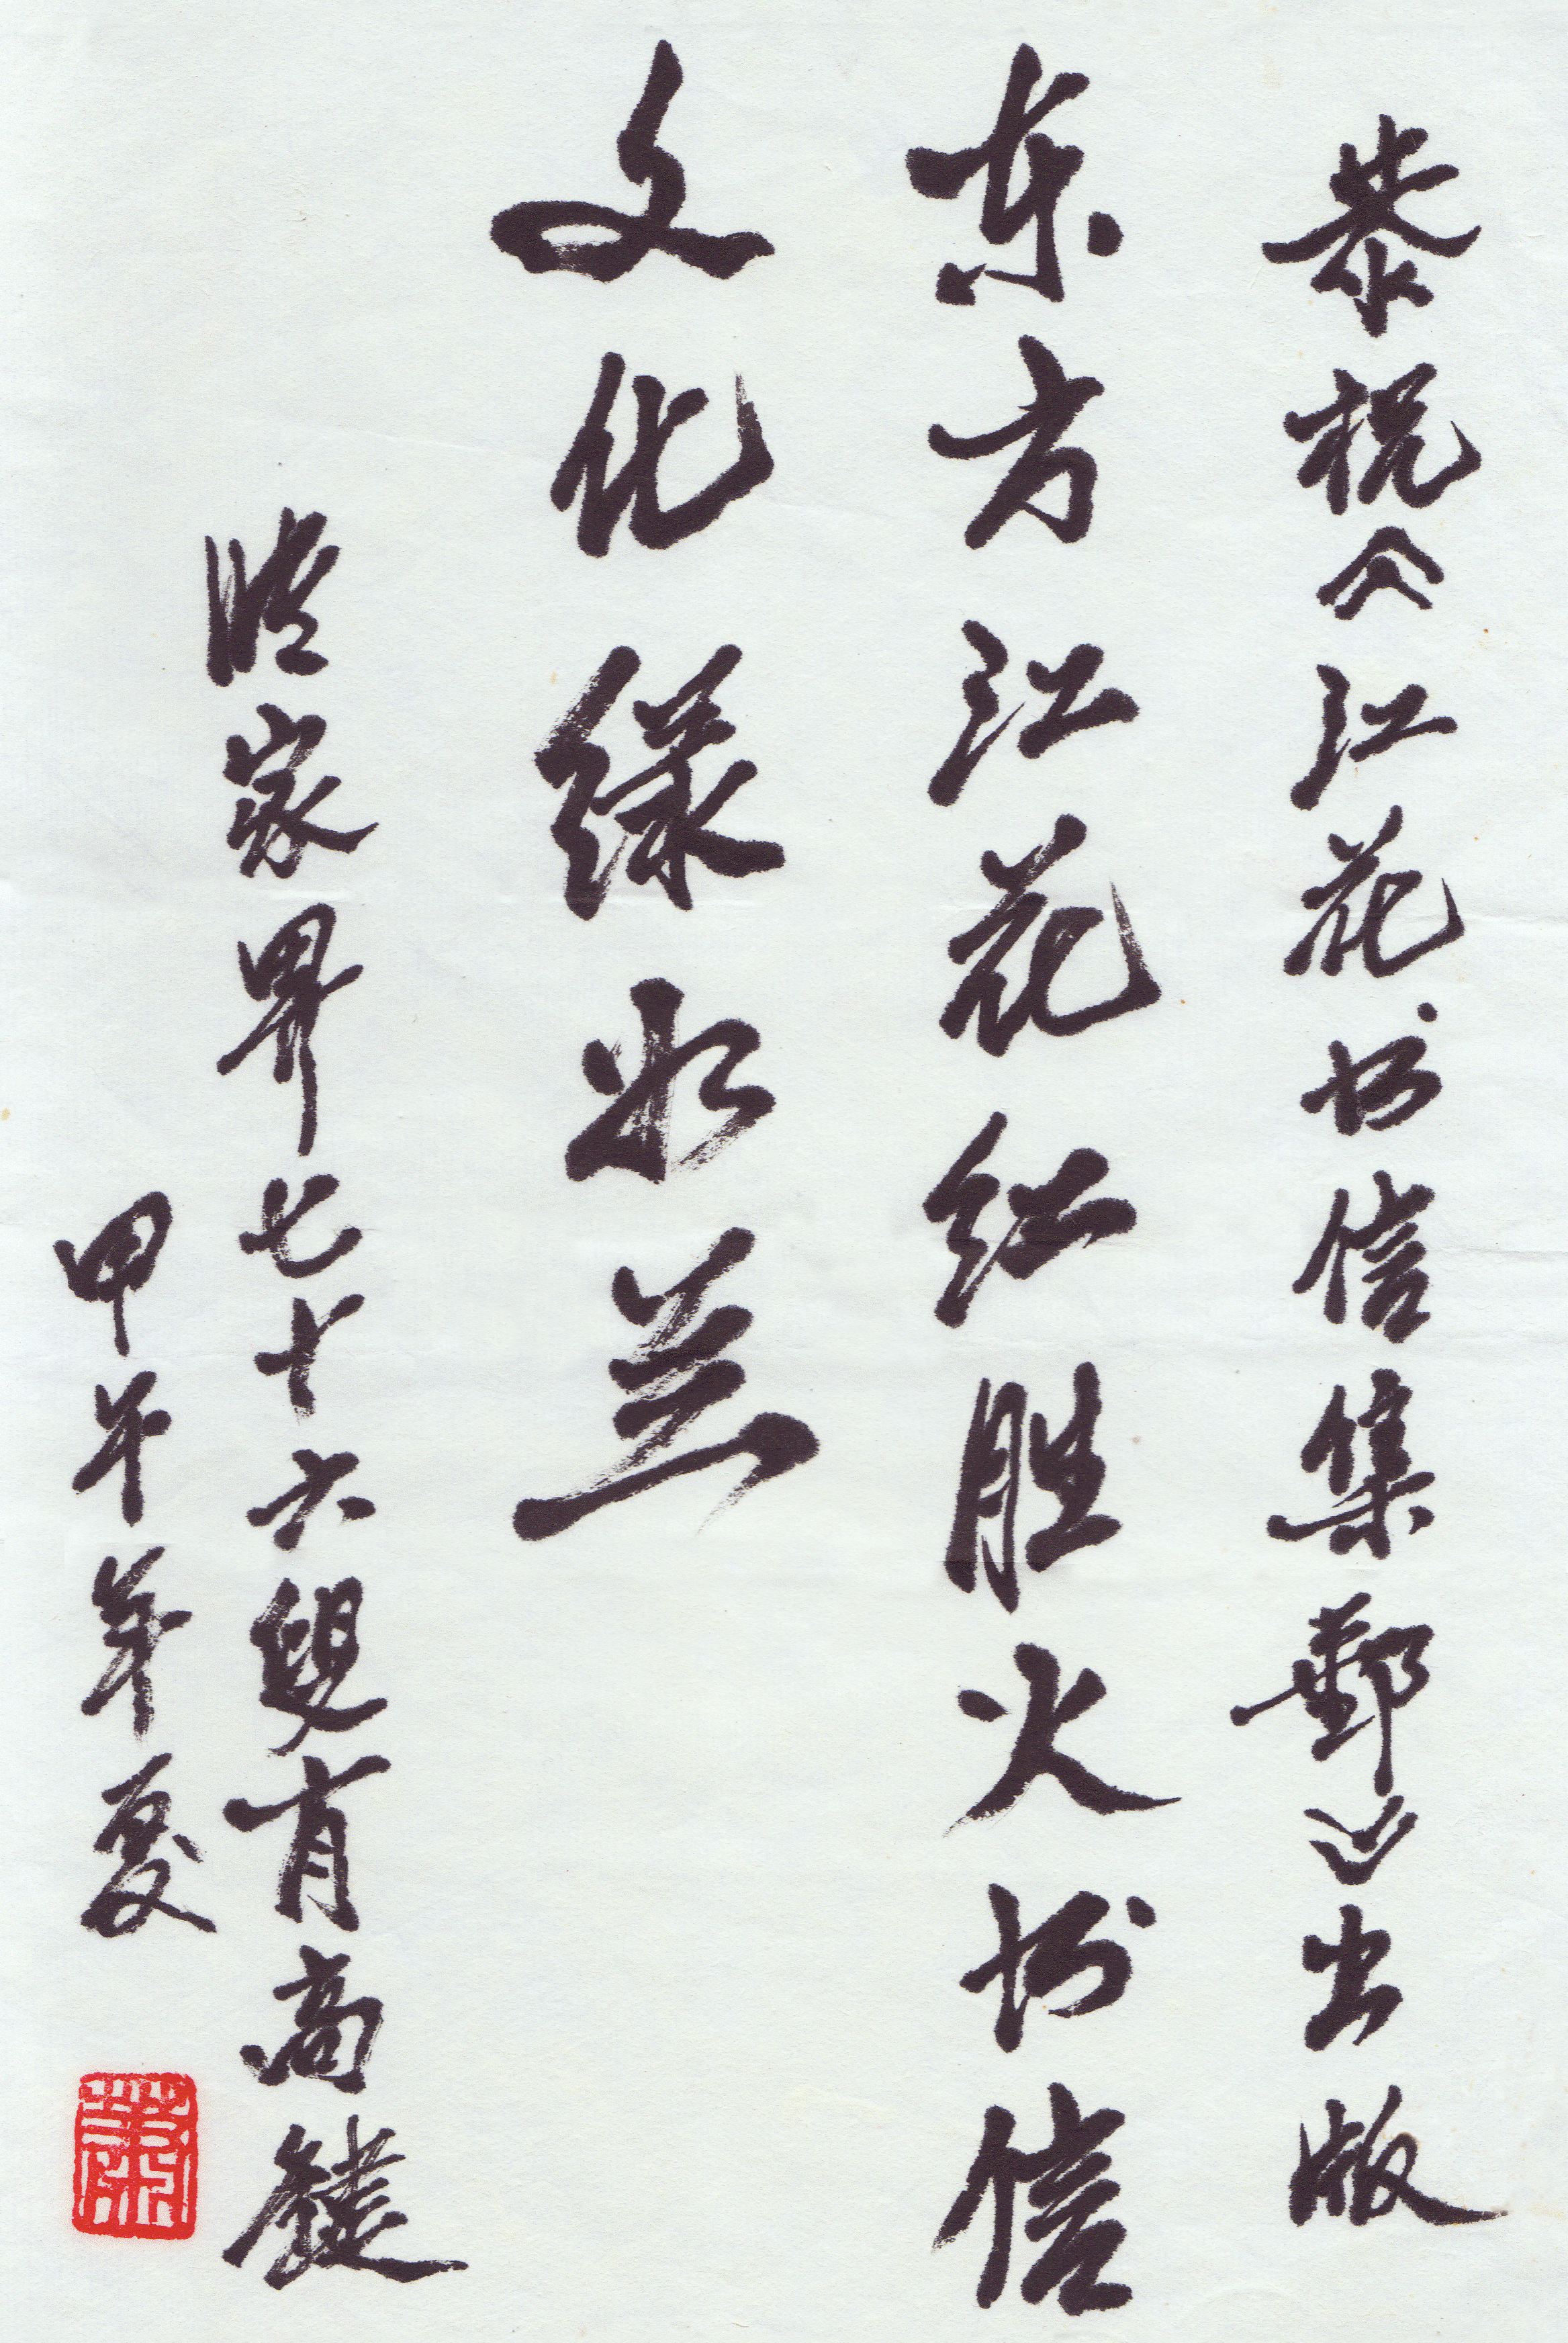 恭祝《江花书信集郵》出版
东方江花红胜火书信
文化绿如兰
张家界七十六叟肖高鍵
甲午年夏